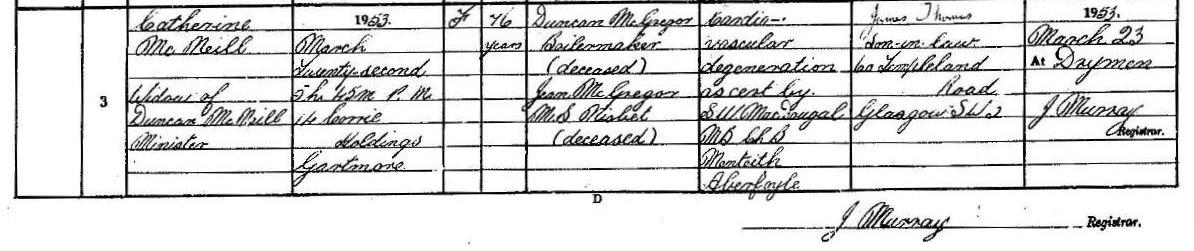 3
Catherine
McNeill
Widow of
Duncan McNeill
Minister
1953.
March
Twenty-second
5 hr 45m P.M.
14 Corrie
Holdings
Gartmore
F
76
years
Duncan McGregor
Boilermaker
(deceased)
Jean McGregor
M.S. Nisbet
(deceased)
Cardio-
vascular
degeneration
as cert by.
S.W. MacDougal
MB ChB
Menteith
Aberfoyle
James Thomas
Son-in-law
60 Templeland
Road
Glasgow SW2
1953.
March 23
At Drymen
J Murray
Registrar.
D
J Murray Registrar.